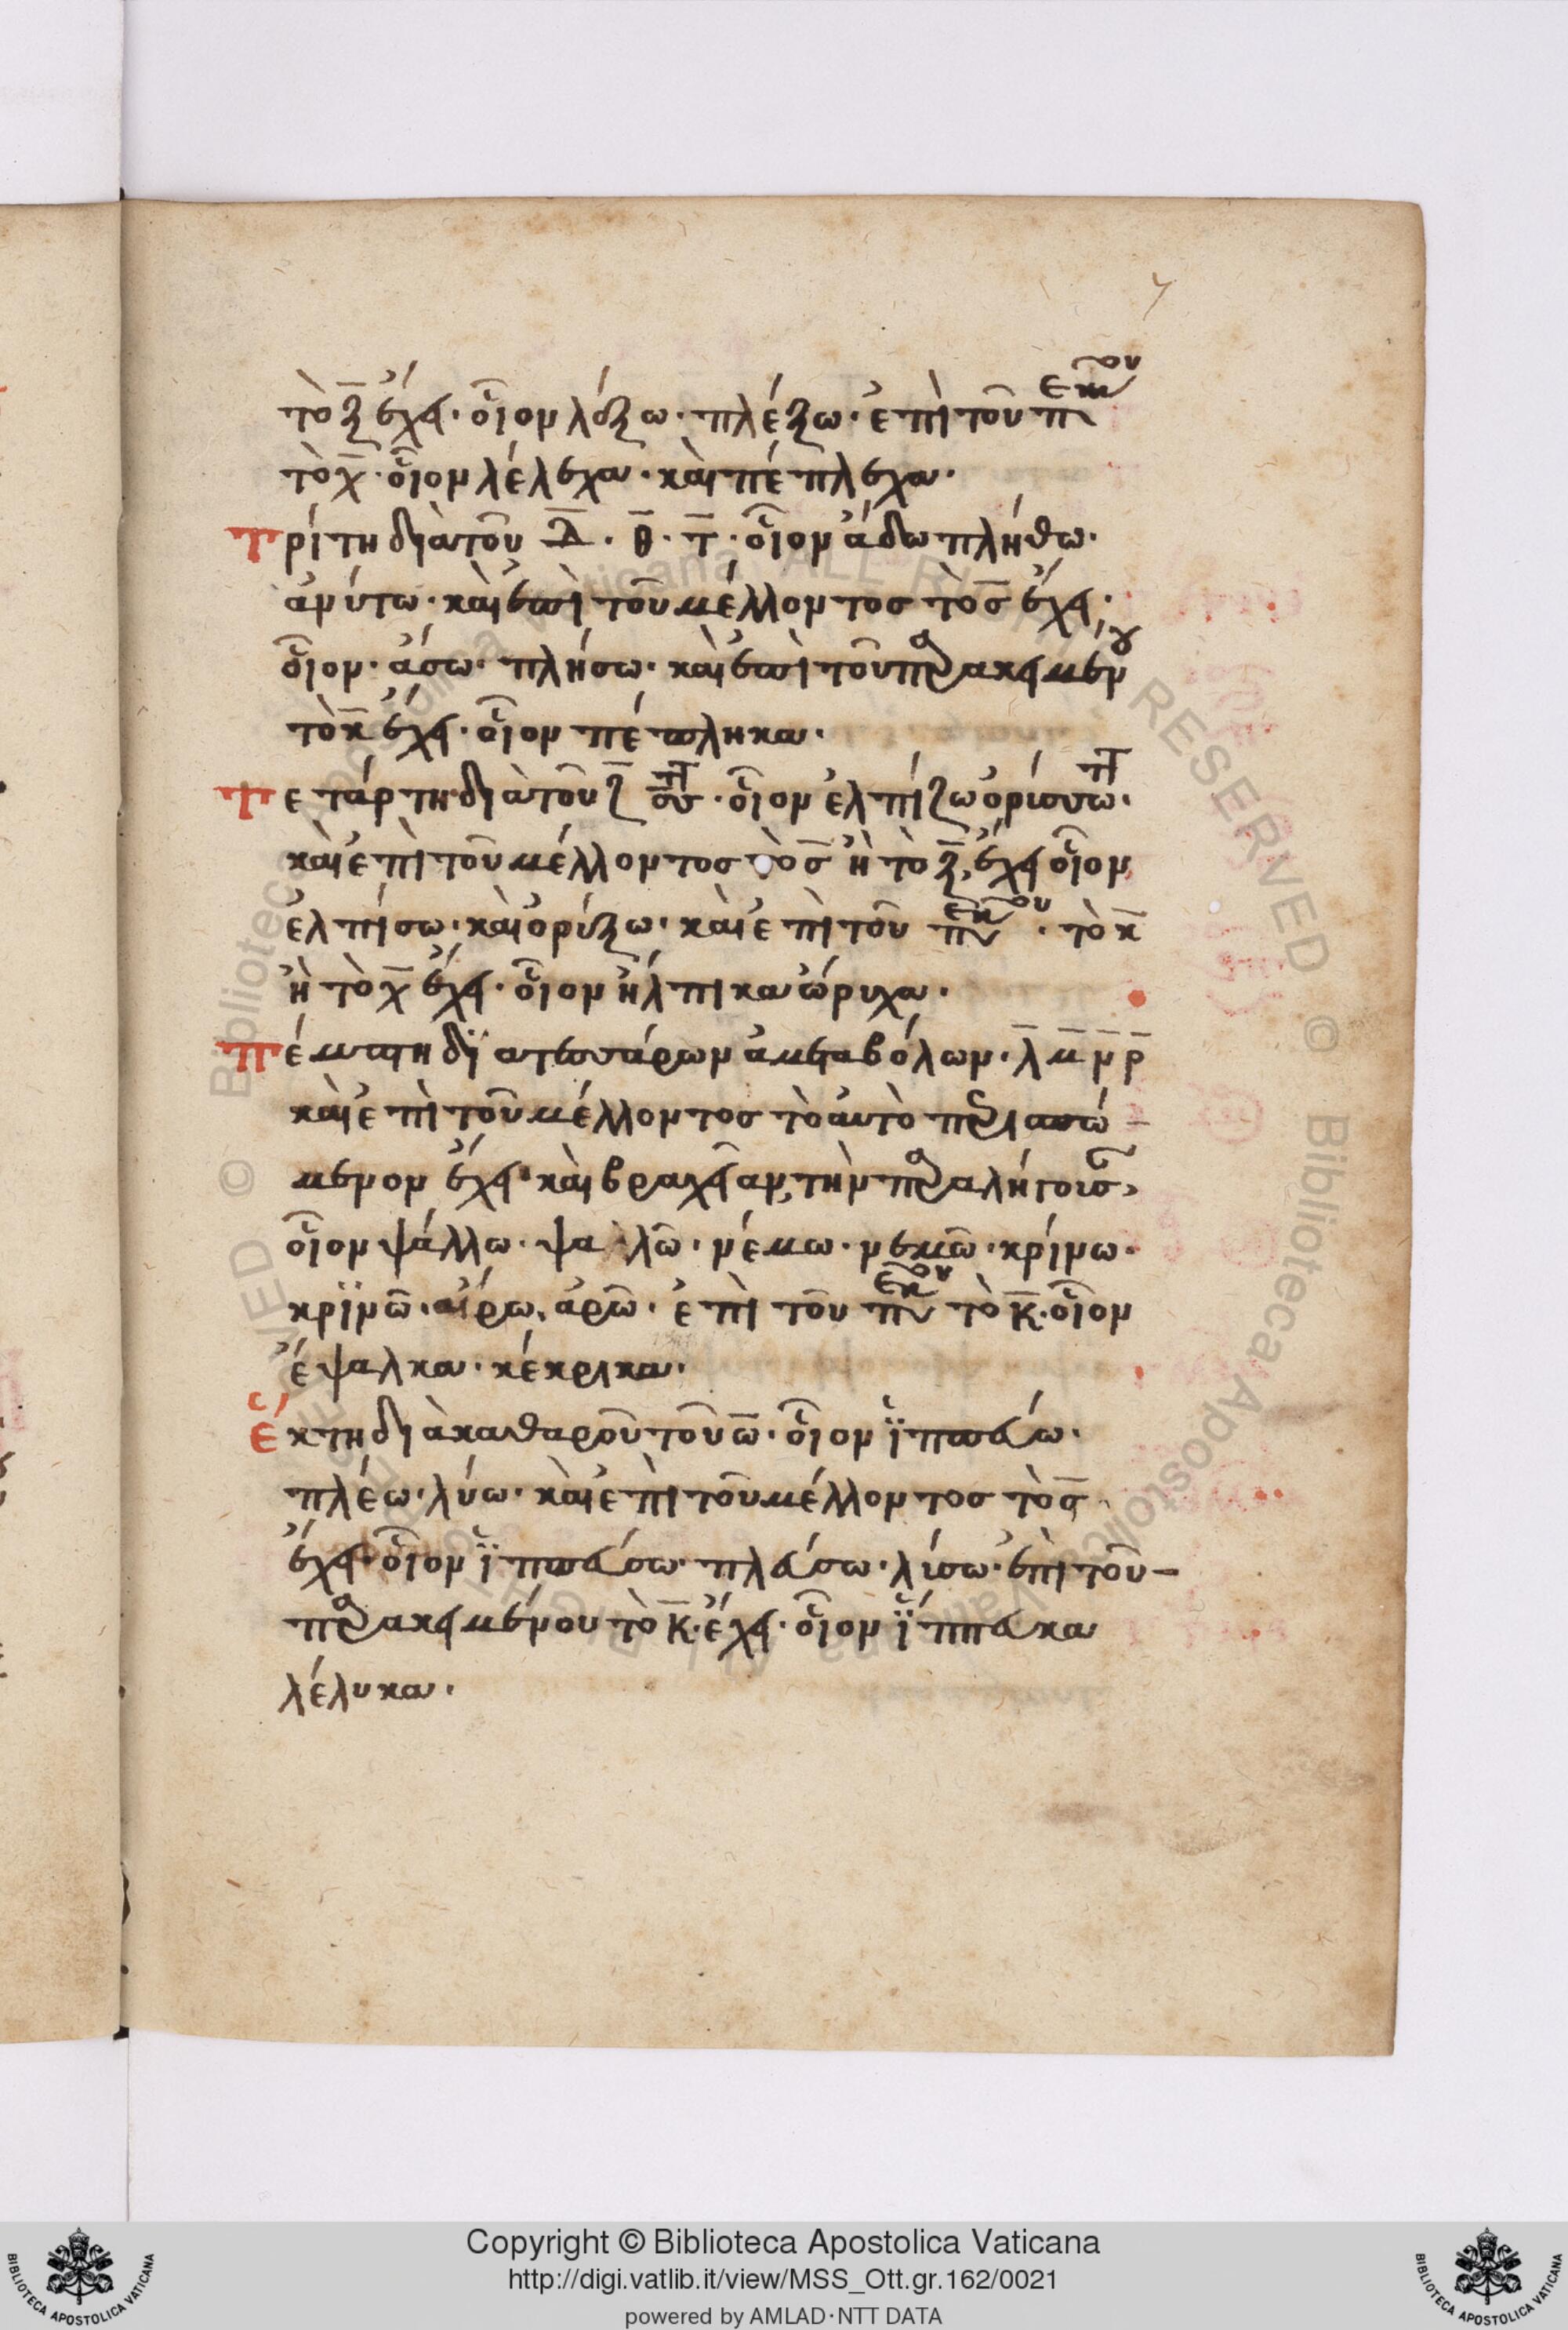 7
τὸ ξ̄ ἔχει· οἷον λέξω· πλέξω· ἐπὶ τοῦ π ἐκει ου
τὸ χ̄· οἷον λέλεχα· καὶ πέπλεχα·
τρίτη διὰ τοῦ δ̄· θ̄· τ̄· οἷον ἄδω πλήθω·
ἀνύτω· καὶ ἐπὶ τοῦ μέλλοντος τὸ σ̄ ἔχει·
οἷον· ἄσω· πλήσω· καὶ ἐπὶ τοῦ πρακειμένου
τὸ κ̄ ἔχει· οἷον πέπληκα·
τετάρτη διὰ τοῦ ζ̄ σσ· οἷον ἐλπίζω ὀρύσσω·
καὶ ἐπὶ τοῦ μέλλοντος τὸ σ̄ ἢ τὸ ξ̄, ἔχει οἷον
ἐλπίσω· καὶ ὀρύξω· καὶ ἐπὶ τοῦ π ἐκει ου· τὸ κ̄
ἢ τὸ χ̄ ἔχει· οἷον ἤλπικα ὤρυχα·
πέμπτη δϊὰ τεσσάρων ἀμεταβόλων· λ̄ μ̄ ν̄ ρ̄
καὶ ἐπὶ τοῦ μέλλοντος τὸ αὐτὸ περισπώ
μενον ἔχει· καὶ βραχεῖαν, τὴν παραλήγουσ,
οἷον ψάλλω· ψα λῶ· νέμω· νεμῶ· κρίνω·
κρϊνῶ· αἴρω, ἀρῶ· ἐπὶ τοῦ π ἐκει ου τὸ κ̄· οἷον
ἔψαλκα· κέκρικα·
ἕκτη διὰ καθαροῦ τοῦ ω̄· οἷον ἱ̈ππεύω·
πλέω· λύω· καὶ ἐπὶ τοῦ μέλλοντος τὸ σ̄
ἔχει· οἷον ἱ̈ππεύσω· πλεύσω· λύσω· ἐπὶ τοῦ–
παρακειμένου τὸ κ̄· ἔχει· οἷον ἵ̈ππευκα
λέλυκα·
Copyright © Biblioteca Apostolica Vaticana
http://digi.vatlib.it/view/MSS_Ott.gr.162/0021
powered by AMLAD·NTT DATA